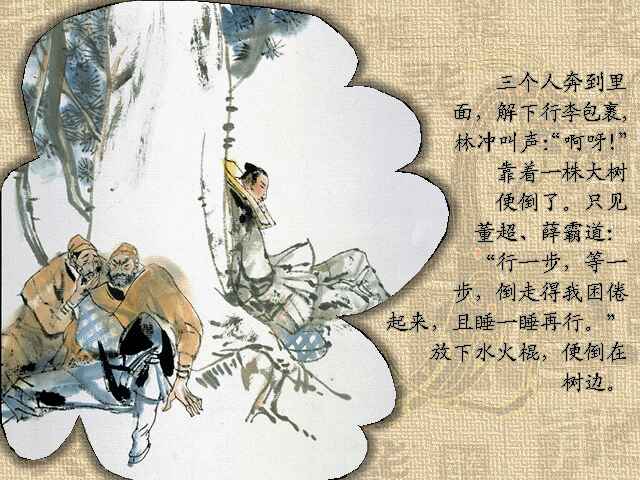 三个人奔到里
面，解下行李包裹，
林冲叫声：“啊呀！”
靠着一株大树
便倒了。只见
董超、薛霸道：
“行一步，等一
步，倒走得我困倦
起来，且睡一睡再行。”
放下水火棍，便倒在
树边。